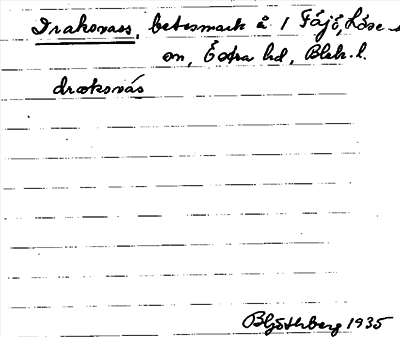 Drakovass, betesmark å 1 Fäjö, Lösen
sn, Östra hd, Blek. l.
drækovás
B Göthberg 1935